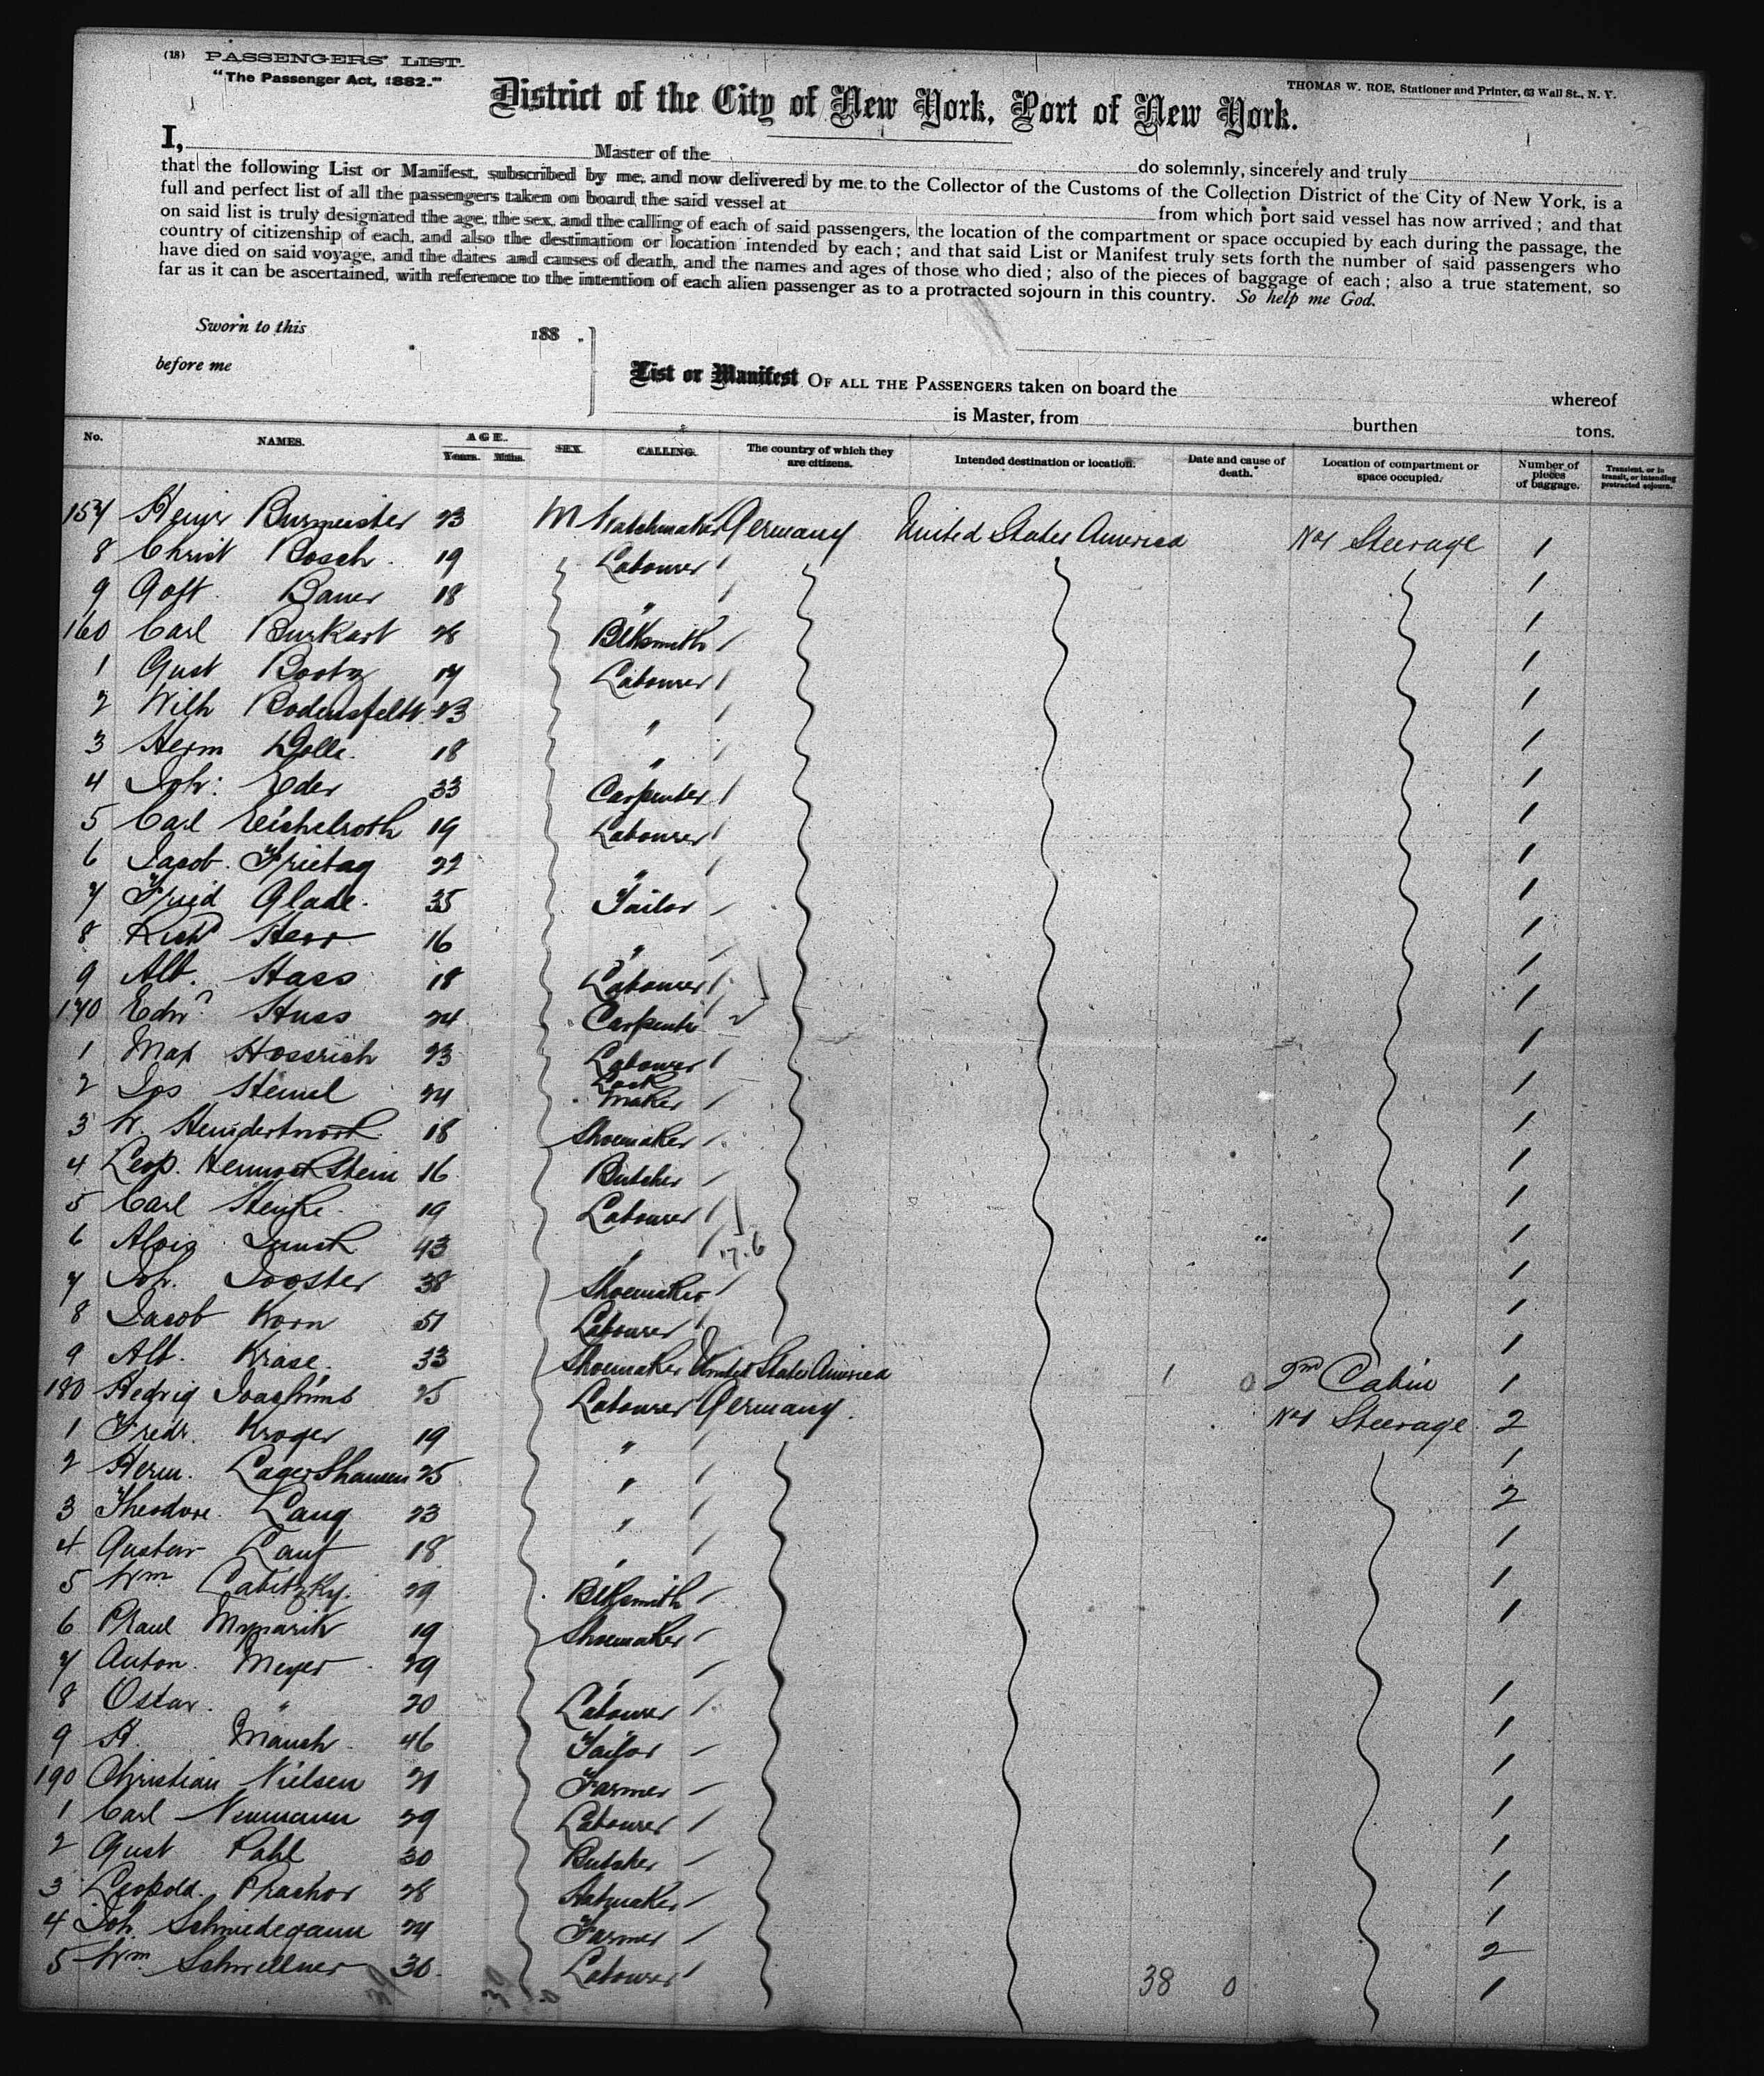 (18) PASSENGERS' LIST.
"The Passenger Act, 1882."
THOMAS W. ROE, Stationer and Printer, 63 Wall St., N. Y.
District of the City of New York, Port of New York.
I, Master of the do solemnly, sincerely and truly
that the following List or Manifest, subscribed by me, and now delivered by me to the Collector of the Customs of the Collection District of the City of New York, is a
full and perfect list of all the passengers taken on board the said vessel at from which port said vessel has now arrived; and that
on said list is truly designated the age, the sex, and the calling of each of said passengers, the location of the compartment or space occupied by each during the passage, the
country of citizenship of each, and also the destination or location intended by each; and that said List or Manifest truly sets forth the number of said passengers who
have died on said voyage, and the dates and causes of death, and the names and ages of those who died; also of the pieces of baggage of each; also a true statement, so
far as it can be ascertained, with reference to the intention of each alien passenger as to a protracted sojourn in this country. So help me God.
Sworn to this 188 .
before me
List or Manifest OF ALL THE PASSENGERS taken on board the whereof
is Master, from burthen tons.
No. NAMES. AGE. Years. Mths. SEX. CALLING. The country of which they are citizens. Intended destination or location. Date and cause of death. Location of compartment or space occupied. Number of pieces of baggage. Transient, or in transit, or intending protracted sojourn.
157 Burmeister 23 M Watchmaker Germany United States America No 1 Steerage 1
8 Christ Bosch 19 Labourer 1
9 Gott Bauer 18 " 1
160 Carl Burkart 28 Blksmith 1
1 Gust Bootz 17 Labourer 1
2 Wilh 23 " 1
3 Herm Dolle 18 " 1
4 Joh: Eder 33 Carpenter 1
5 Carl Eichelroth 19 Labourer 1
6 Jacob Frietag 22 " 1
7 Fried Glade 35 Tailor 1
8 Richd Herr 16 " 1
9 Alb. Hass 18 Labourer 1
170 Edw Huss 24 Carpentr 1
1 Max Hossrich 23 Labourer 1
2 Jos Heimel 24 Lock maker 1
3 W. 18 Shoemaker 1
4 Leop. 16 Butcher 1
5 Carl Henke 19 Labourer 1
6 Alois 43 " 17.6 1
7 Joh. Jooster 38 Shoemaker 1
8 Jacob Korn 51 Labourer 1
9 Alb. Krase 33 Shoemaker United States America 1 0 2nd Cabin 1
180 Hedwig Joachims 25 Labourer Germany No 1 Steerage 2
1 Fredr. Kroger 19 " 1
2 Herm. 25 " 2
3 Theodore Lang 23 " 1
4 Gustav 18 " 1
5 Wm Labitzky 29 Blksmith 1
6 19 Shoemaker
7 Anton Meyer 29 "
8 " 20 Labourer 1
9 H. Mauch 46 Tailor 1
190 Christian Nielsen 21 Farmer 1
1 Carl Neumann 29 Labourer 1
2 Gust Pahl 30 Butcher 1
3 Leopold 28 Hatmaker 1
4 Joh. Schmiedegann 24 Farmer 2
5 Wm Schwellner 30 Labourer 1
39 39 0 38 0